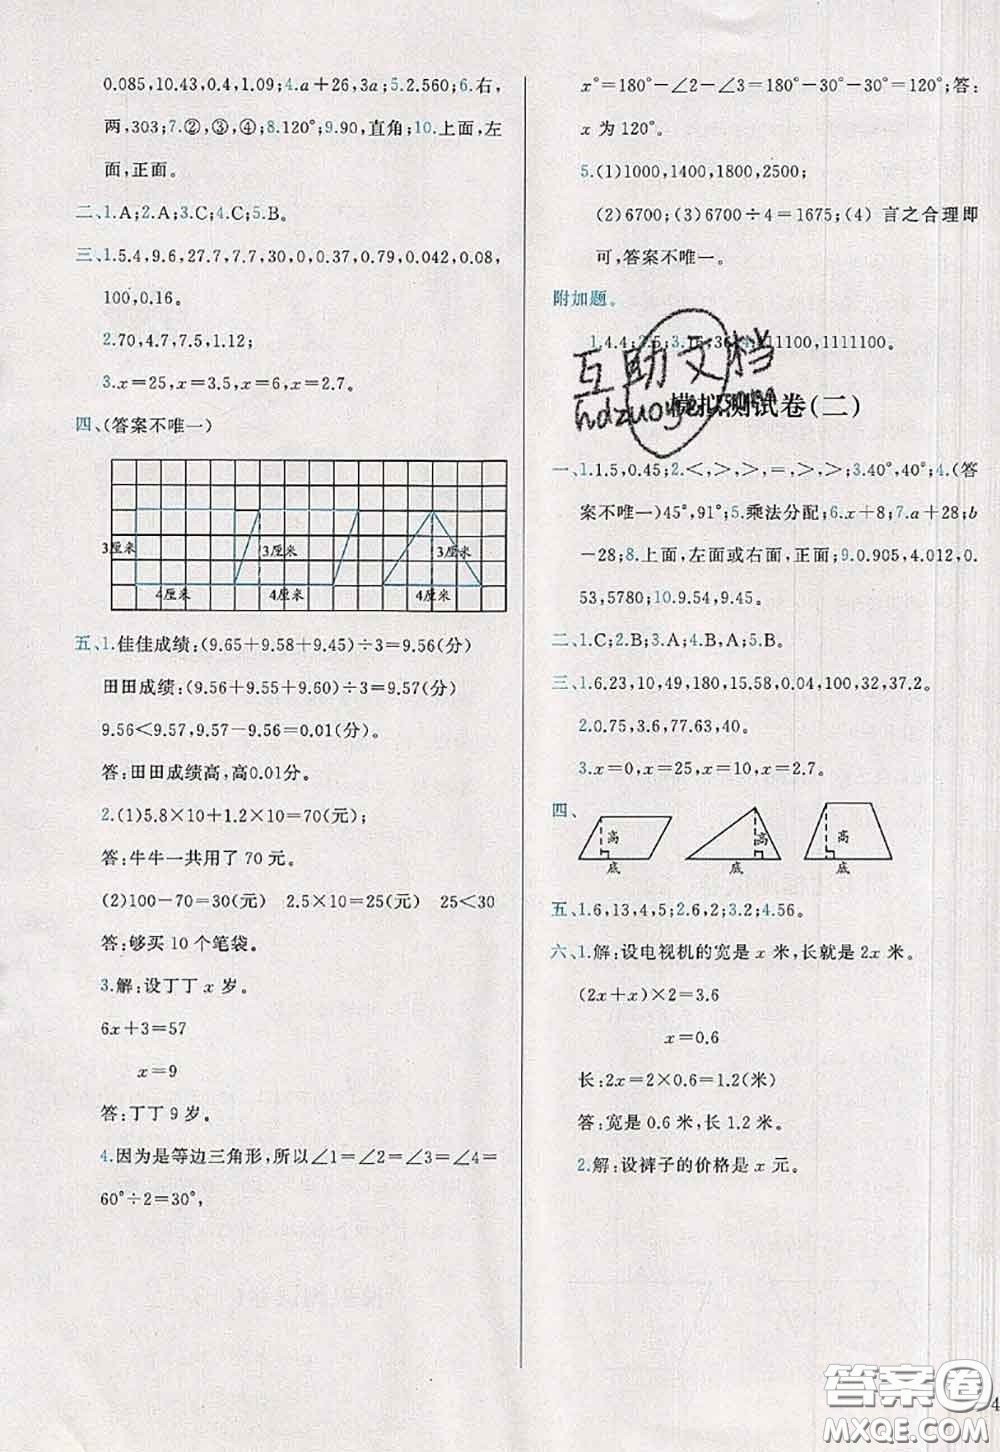 0.085,10.43,0.4,1.09;4.a+26,3a;5.2.560;6.右,
两,303;7.②,③,④;8.120°;9.90,直角;10.上面,左
面,正面。
二、1.A;2.A;3.C;4.C;5.B。
三、1.5.4,9.6,27.7,7.7,30,0,0.37,0.79,0.042,0.08,
100,0.16。
2.70,4.7,7.5,1.12;
3.x=25,x=3.5,x=6,x=2.7。
四、(答案不唯一)
3厘米
3厘米
3厘米
4厘米
4厘米
4厘米
五、1.佳佳成绩:(9.65+9.58+9.45)÷3=9.56(分)
田田成绩:(9.56+9.55+9.60)÷3=9.57(分)
9.56<9.57,9.57-9.56=0.01(分)。
答:田田成绩高,高0.01分。
2.(1)5.8×10+1.2×10=70(元);
答:牛牛一共用了 70 元。
(2)100-70=30(元) 2.5×10=25(元) 25<30
答:够买 10 个笔袋。
3.解:设丁丁 x 岁。
6x+3=57
x=9
答:丁丁 9 岁。
4.因为是等边三角形,所以∠1=∠2=∠3=∠4=
60°÷2=30°,
x°=180°-∠2-∠3=180°-30°-30°=120°;答:
x 为 120°。
5.(1)1000,1400,1800,2500;
(2)6700;(3)6700÷4=1675;(4) 言之合理即
可,答案不唯一。
附加题。
1.4.4;2.5;3.15,36;4.111100,1111100。
互助文档
模拟测试卷(二)
一、1.1.5,0.45;2.<,>,>,=,>,>;3.40°,40°;4.(答
案不唯一)45°,91°;5.乘法分配;6.x+8;7.a+28;b
-28;8.上面,左面或右面,正面;9.0.905,4.012,0.
53,5780;10.9.54,9.45。
二、1.C;2.B;3.A;4.B,A;5.B。
三、1.6.23,10,49,180,15.58,0.04,100,32,37.2。
2.0.75,3.6,77.63,40。
3.x=0,x=25,x=10,x=2.7。
四、
高
底
高
底
高
底
五、1.6,13,4,5;2.6,2;3.2;4.56。
六、1.解:设电视机的宽是 x 米,长就是 2x 米。
(2x+x)×2=3.6
x=0.6
长:2x=2×0.6=1.2(米)
答:宽是 0.6 米,长 1.2 米。
2.解:设裤子的价格是 x 元。
答案圈
MXQE.COM
4